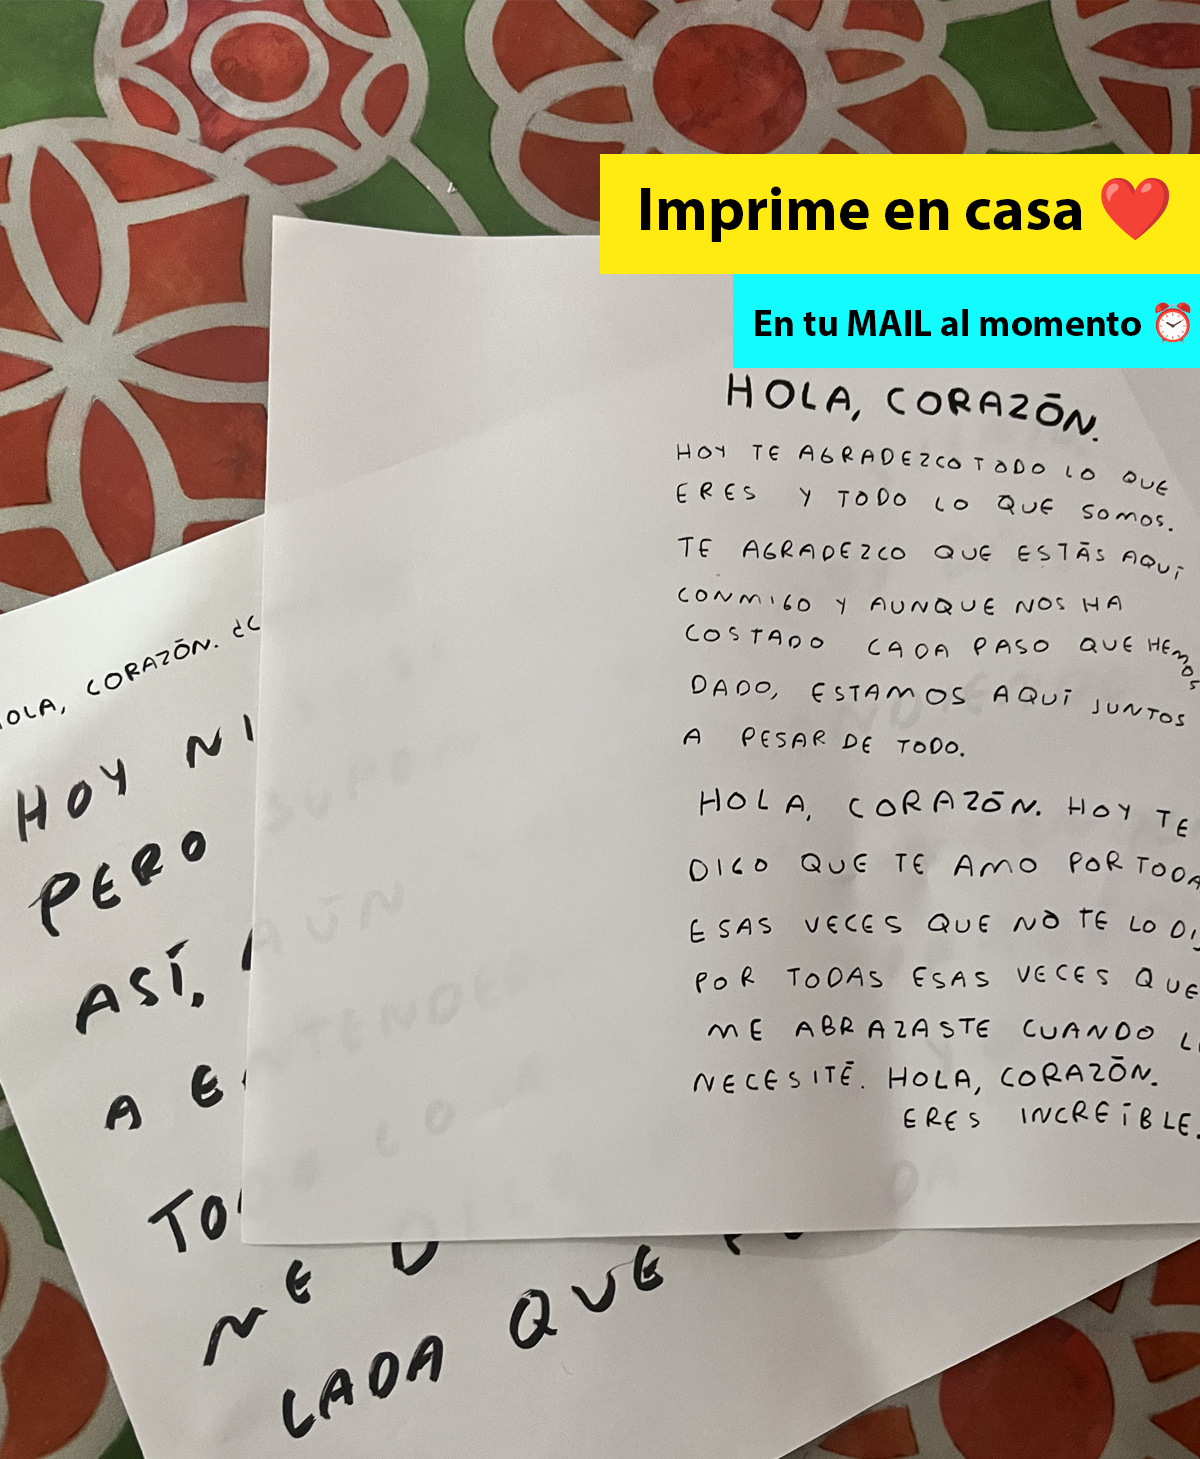 Imprime en casa ❤️
En tu MAIL al momento ⏰
HOLA, CORAZÓN.
HOY TE AGRADEZCO TODO LO QUE
ERES Y TODO LO QUE SOMOS.
TE AGRADEZCO QUE ESTÁS AQUÍ
CONMIGO Y AUNQUE NOS HA
COSTADO CADA PASO QUE HEMOS
DADO, ESTAMOS AQUÍ JUNTOS
A PESAR DE TODO.
HOLA, CORAZÓN. HOY TE
DIGO QUE TE AMO POR TODA
ESAS VECES QUE NO TE LO DI
POR TODAS ESAS VECES QUE
ME ABRAZASTE CUANDO L
NECESITÉ. HOLA, CORAZÓN.
ERES INCREÍBLE.
OLA, CORAZÓN. ¿C
HOY NI
PERO
ASÍ,
A E
TO
ME DI
LADA QUE